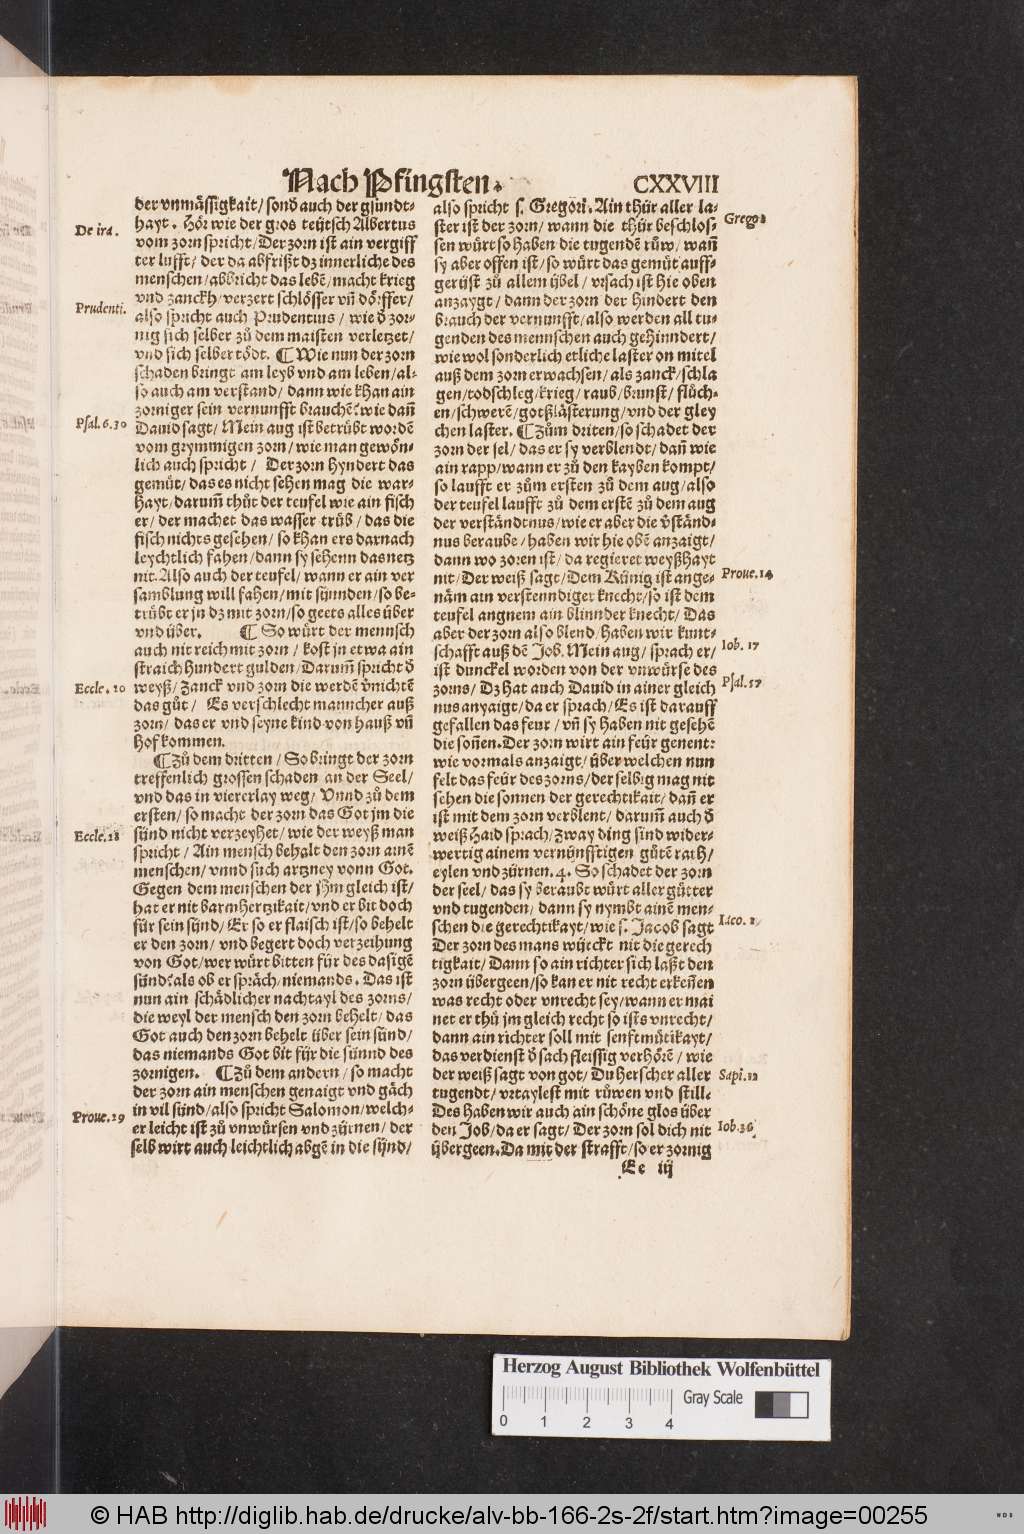 Nach Pfingsten. CXXVIII
der vnmässigkait/ sond̄ auch der gsundt-
hayt. Hör wie der gros teütsch Albertus
vom zorn spricht/ Der zorn ist ain vergiff
ter lufft/ der da abfrißt dz innerliche des
menschen/ abbricht das lebē/ macht krieg
vnd zanckh/ verzert schlösser vn̄ dörffer/
also spricht auch Prudentius/ wie d̄ zor-
nig sich selber zů dem maisten verletzet/
vnd sich selber tödt. ¶ Wie nun der zorn
schaden bringt am leyb vnd am leben/ al-
so auch am verstand/ dann wie khan ain
zorniger sein vernunfft brauchē? wie dan̄
Dauid sagt/ Mein aug ist betrübt wordē
vom grymmigen zorn/ wie man gewön-
lich auch spricht/ Der zorn hyndert das
gemüt/ das es nicht sehen mag die war-
hayt/ darum̄ thůt der teufel wie ain fisch
er/ der machet das wasser trüb/ das die
fisch nichts gesehen/ so khan ers darnach
leychtlich fahen/ dann sy sehenn das netz
nit. Also auch der teufel/ wann er ain ver
samblung will fahen/ mit sünnden/ so be-
trübt er jn dz mit zorn/ so geets alles über
vnd über. ¶ So würt der mennsch
auch nit reich mit zorn/ kost jn etwa ain
straich hundert gulden/ Darum̄ spricht d̄
weyß/ Zanck vnd zorn die werdē v̄nichtē
das gůt/ Es verschlecht manncher auß
zorn/ das er vnd seyne kind von hauß vn̄
hof kommen.
¶ Zů dem dritten/ So bringt der zorn
treffenlich grossen schaden an der Seel/
vnd das in viererlay weg/ Vnnd zů dem
ersten/ so macht der zorn das Got jm die
sünd nicht verzeyhet/ wie der weyß man
spricht/ Ain mensch behalt den zorn arnē
menschen/ vnnd such artzney vonn Got.
Gegen dem menschen der jhm gleich ist/
hat er nit barmhertzikait/ vnd er bit doch
für sein sünd/ Er so er flaisch ist/ so behelt
er den zorn/ vnd begert doch verzeihung
von Got/ wer würt bitten für des dasigē
sünd? als ob er spräch/ niemands. Das ist
nun ain schädlicher nachtayl des zorns/
die weyl der mensch den zorn behelt/ das
Got auch den zorn behelt über sein sünd/
das niemands Got bit für die sünnd des
zornigen. ¶ Zů dem andern/ so macht
der zorn ain menschen genaigt vnd gäch
in vil sünd/ also spricht Salomon/ welch-
er leicht ist zů vnwürsen vnd zürnen/ der
selb wirt auch leichtlich abgē in die sünd/
De ira.
Prudenti.
Psal. 6. 30
Eccle. 20
Eccle. 28
Proue. 29
also spricht s. Gregori. Ain thür aller la-
ster ist der zorn/ wann die thür beschlos-
sen würt so haben die tugendē rüw/ wan̄
sy aber offen ist/ so würt das gemüt auff-
gerüst zů allem übel/ vrsach ist hie oben
anzaygt/ dann der zorn der hindert den
brauch der vernunfft/ also werden all tu-
genden des mennschen auch gehinndert/
wiewol sonderlich etliche laster on mitel
auß dem zorn erwachsen/ als zanck/ schla
gen/ todschleg/ krieg/ raub/ brunst/ flüch-
en/ schwerē/ gotßlästerung/ vnd der gley
chen laster. ¶ Zům driten/ so schadet der
zorn der sel/ das er sy verblendt/ dan̄ wie
ain rapp/ wann er zů den kayben kompt/
so laufft er zům ersten zů dem aug/ also
der teufel laufft zů dem erstē zů dem aug
der verständtnus/ wie er aber die v̄ständ-
nus beraube/ haben wir hie obē anzaigt/
dann wo zoren ist/ da regieret weyßhayt
nit/ Der weiß sagt/ Dem Künig ist ange-
näm ain verstenndiger knecht/ so ist dem
teufel angnem ain blinnder knecht/ Das
aber der zorn also blend/ haben wir kunt-
schafft auß dē Job. Mein aug/ sprach er/
ist dunckel worden von der vnwürse des
zorns/ Dz hat auch Dauid in ainer gleich
nus anyaigt/ da er sprach/ Es ist darauff
gefallen das feur/ vn̄ sy haben nit gesehē
die son̄en. Der zorn wirt ain feür genent:
wie vormals anzaigt/ über welchen nun
felt das feür des zorns/ der selbig mag nit
sehen die sonnen der gerechtikait/ dan̄ er
ist mit dem zorn verblent/ darum̄ auch d̄
weiß Haid sprach/ Zway ding sind wider-
wertig ainem vernünfftigen gůtē rath/
eylen vnd zürnen. 4. So schadet der zorn
der seel/ das sy beraubt würt aller gütter
vnd tugenden/ dann sy nymbt ainē men-
schen die gerechtikayt/ wie s. Jacob sagt
Der zorn des mans würckt nit die gerech
tigkait/ Dann so ain richter sich laßt den
zorn übergeen/ so kan er nit recht erken̄en
was recht oder vnrecht sey/ wann er mai
net er thü jm gleich recht so ists vnrecht/
dann ain richter soll mit senftmütikayt/
das verdienst d̄ sach fleissig verhörē/ wie
der weiß sagt von got/ Du herscher aller
tugendt/ vrtaylest mit rüwen vnd still.
Des haben wir auch ain schöne glos über
den Job/ da er sagt/ Der zorn sol dich nit
übergeen. Da mit der strafft/ so er zornig
Grego:
Proue. 14
Iob. 17
Psal. 57
Iaco. 1
Sapi. 12
Iob. 36
Ee iij
Herzog August Bibliothek Wolfenbüttel
Gray Scale
0 1 2 3 4
© HAB http://diglib.hab.de/drucke/alv-bb-166-2s-2f/start.htm?image=00255